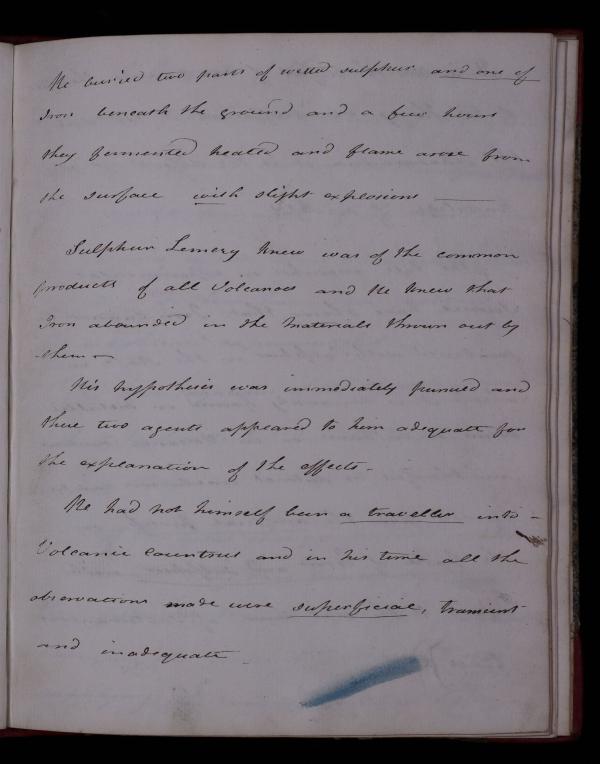 He buried two parts of wetted sulphur and one of
Iron beneath the ground and a few hours
they fermented heated and flame arose from
the surface with slight explosions ——
Sulphur Lemery knew was of the common
products of all Volcanoes and He knew that
Iron abounded in the Materials thrown out by
them –
His hypothesis was immediately pursued and
these two agents appeared to him adequate for
the explanation of the effects –
He had not himself been a traveller into –
Volcanic Countries and in his time all the
observations made were superficial, transient
and inadequate –